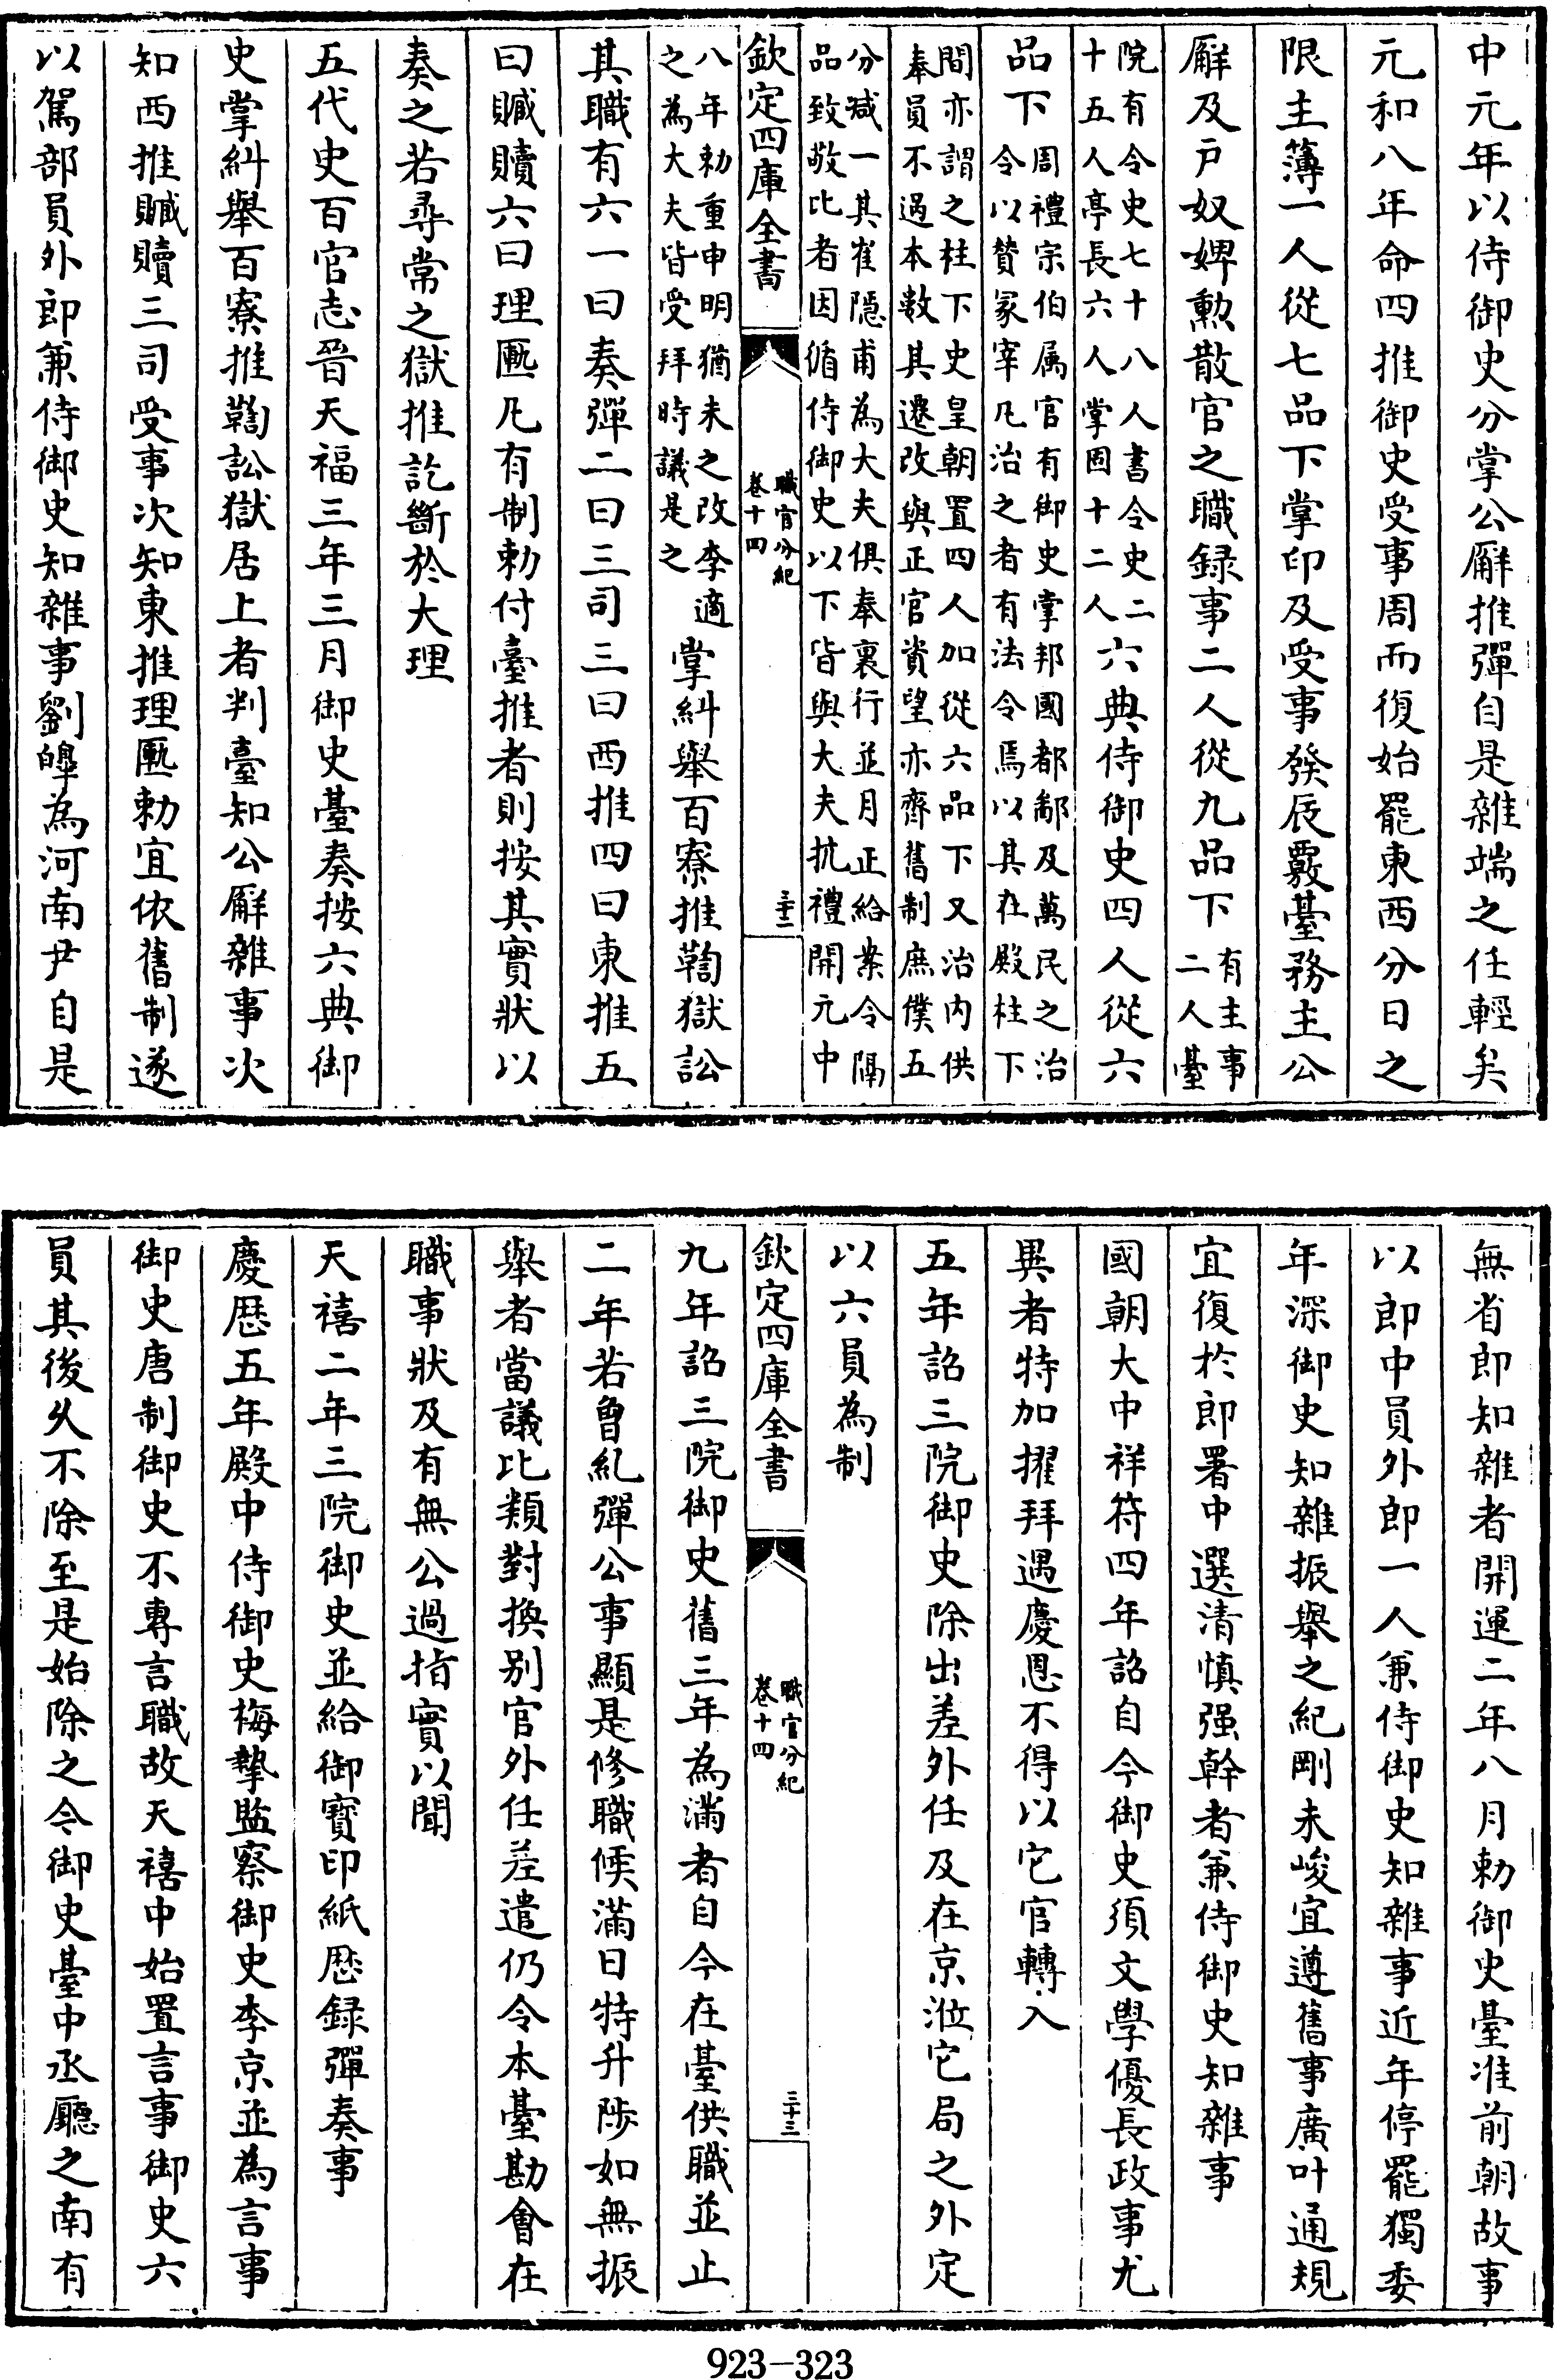 中元年以侍御史分掌公廨推彈自是雜端之任輕矣
元和八年命四推御史受事周而復始罷東西分日之
限主薄一人從七品下掌印及受事發辰覈臺務主公
廨及戸奴婢勲散官之職録事二人從九品下有主事二人臺
院有令史七十八人書令史二十五人亭長六人掌固十二人六典侍御史四人從六
品下周禮宗伯属官有御史掌邦國都鄙及萬民之治令以賛冢宰凡治之者有法令焉以其在殿柱下
間亦謂之柱下史皇朝置四人加從六品下又治内供奉員不過本數其遷改與正官資望亦齊舊制庶僕五
分减一其崔隱甫為大夫俱奉裏行並月正給業令隔品致敬比者因循侍御史以下皆與大夫抗禮開元中
欽定四庫全書 職官分紀卷十四 三十二
八年勅重申明猶未之改李適之為大夫皆受拜時議是之掌糾舉百寮推鞫獄訟
其職有六一曰奏彈二曰三司三曰西推四曰東推五
曰贓贖六曰理匭凡有制勅付臺推者則按其實狀以
奏之若尋常之獄推訖斷於大理
五代史百官志晉天福三年三月御史臺奏按六典御
史掌糾舉百寮推鞫訟獄居上者判臺知公廨雜事次
知西推贓贖三司受事次知東推理匭勅宜依舊制遂
以駕部員外郎兼侍御史知雜事劉皥為河南尹自是
無省郎知雜者開運二年八月勅御史臺准前朝故事
以郎中員外郎一人兼侍御史知雜事近年停罷獨委
年深御史知雜振舉之紀剛未峻宜遵舊事廣叶通規
宜復於郎署中選清慎强幹者兼侍御史知雜事
國朝大中祥符四年詔自今御史須文學優長政事尤
異者特加擢拜遇慶恩不得以它官轉入
五年詔三院御史除出差外任及在京涖它局之外定
以六員為制
欽定四庫全書 職官分紀卷十四 三十三
九年詔三院御史舊三年為滿者自今在臺供職並止
二年若曾糺彈公事顯是修職候滿日特升陟如無振
舉者當議比類對換别官外任差遣仍令本臺勘會在
職事狀及有無公過指實以聞
天禧二年三院御史並給御寳印紙厯録彈奏事
慶厯五年殿中侍御史梅摯監察御史李京並為言事
御史唐制御史不專言職故天禧中始置言事御史六
員其後乆不除至是始除之今御史臺中丞廳之南有
923-323